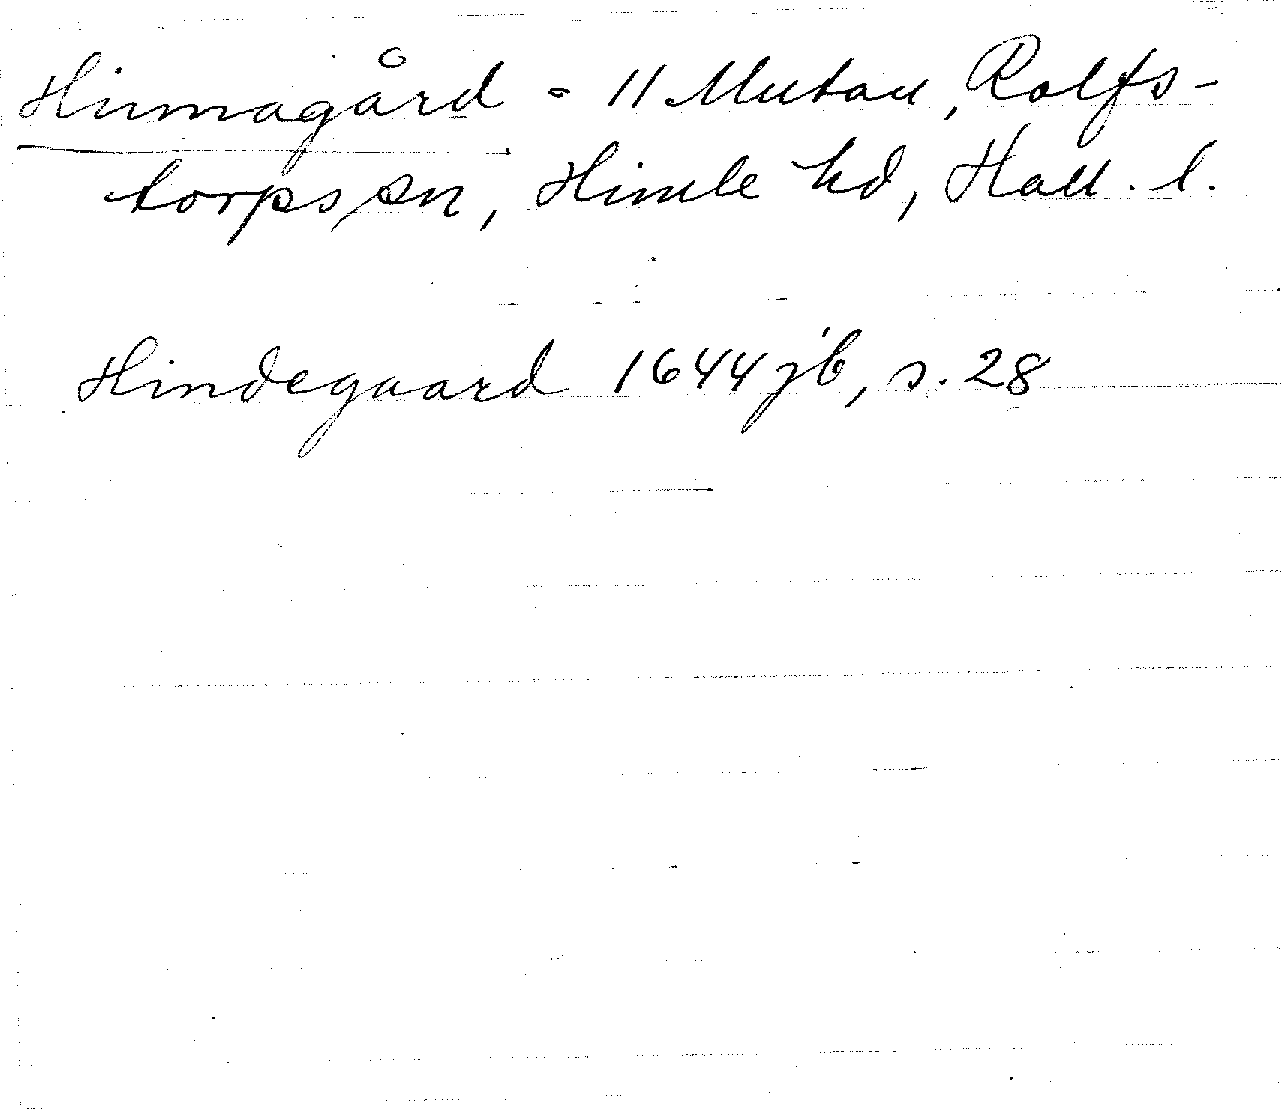 Hinnagård - 11 Mutau, Rolfs-
torps sn, Himle hd, Hall. l.
Hindegaard 1644 jb, s. 28